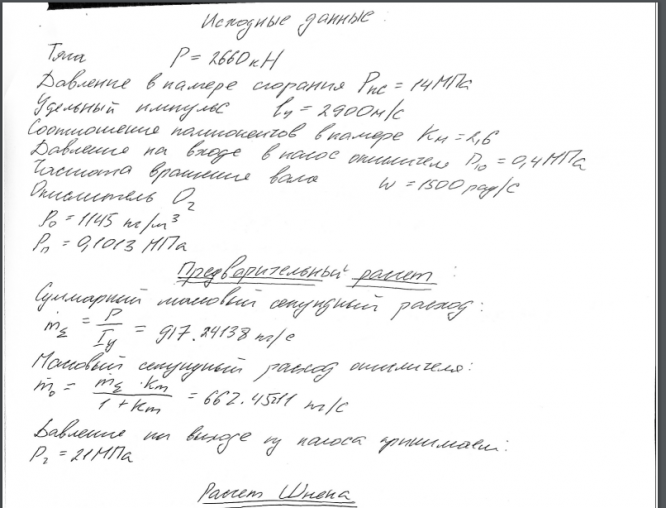 Исходные данные:
Тяга P = 2660 кН
Давление в камере сгорания Pкс = 14 МПа
Удельный импульс Iу = 2900 м/с
Соотношение компонентов в камере Км = 2,6
Давление на входе в насос окислителя P1о = 0,4 МПа
Частота вращения вала ω = 1500 рад/с
Окислитель O2
ρо = 1145 кг/м³
Pп = 0,1013 МПа
Предварительный расчет:
Суммарный массовый секундный расход:
ṁΣ = P/Iу = 917.24138 кг/с
Массовый секундный расход окислителя:
ṁо = ṁΣ · Км / 1 + Км = 662.45211 кг/с
Давление на выходе из насоса принимаем:
P2 = 21 МПа
Расчет Шнека